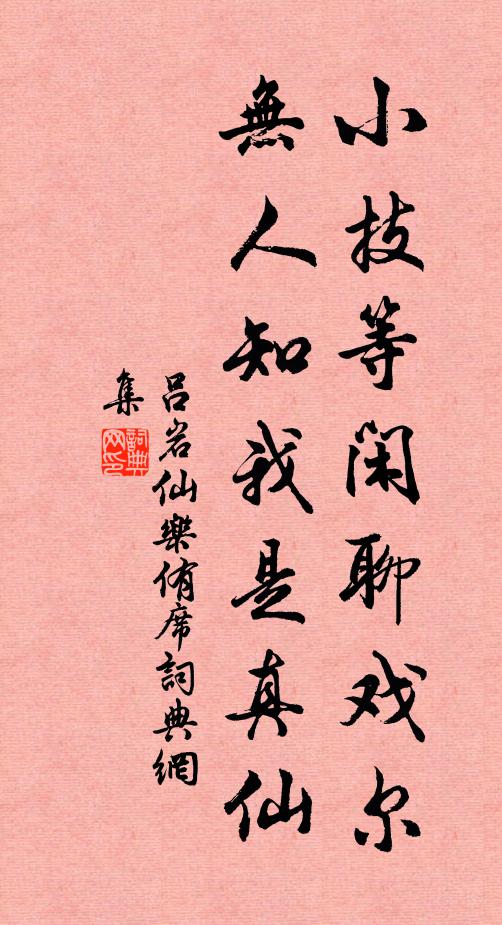 小技等闲聊戏尔
無人知我是真仙
吕岩仙樂侑席詞典網
集
詞典
网印